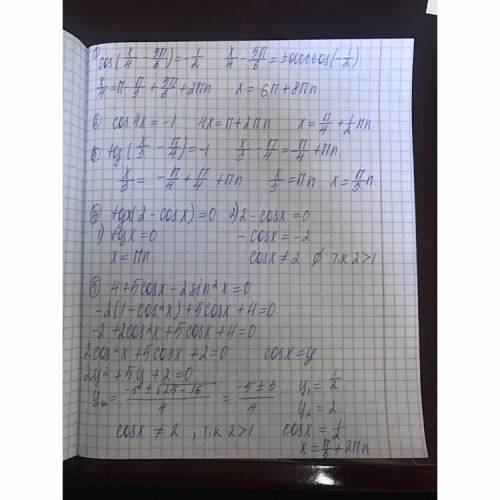 ① cos(x/4 - 5π/6) = -1/2   x/4 - 5π/6 = ±arccos(-1/2)
x/4 = π - π/3 + 5π/6 + 2πn   x = 6π + 8πn
② cos4x = -1   4x = π + 2πn   x = π/4 + 1/2 πn
③ tg(x/3 - π/4) = -1   x/3 - π/4 = -π/4 + πn,
x/3 = -π/4 + π/4 + πn   x/3 = πn   x = π/3 n.
④ tgx(2 - cosx) = 0   2) 2 - cosx = 0
1) tgx = 0   -cosx = -2
x = πn   cosx ≠ 2 ∅ т.к 2>1
⑤ 4 + 5cosx - 2sin²x = 0
-2(1 - cos²x) + 5cosx + 4 = 0
-2 + 2cos²x + 5cosx + 4 = 0
2cos²x + 5cosx + 2 = 0   cosx = y
2y² + 5y + 2 = 0
y₁,₂ = (-5 ± √(25 - 16))/4 = (-5 ± 3)/4   y₁ = 1/2
y₂ = 2
cosx ≠ 2, т.к 2>1   cosx = 1/2
x = π/3 + 2πn